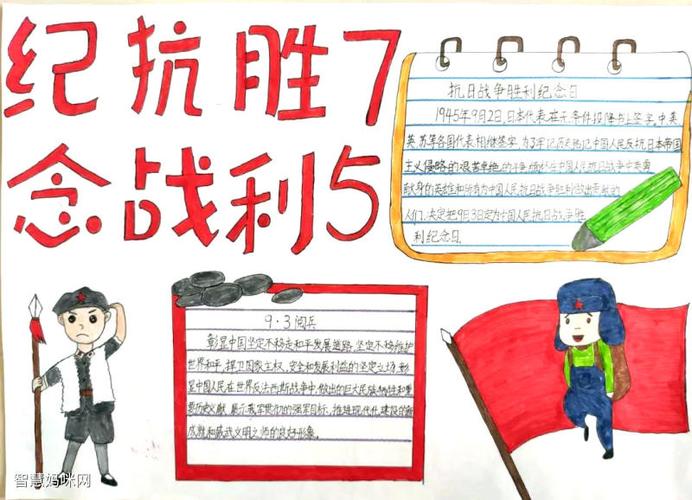 纪抗胜7
念战利5
抗日战争胜利纪念日
1945年9月2日,日本代表在无条件投降书上签字,中、美
英、苏等各国代表相继签字,为了牢记历史,铭记中国人民反抗日本帝国
主义侵略的艰苦卓绝的斗争,缅怀在中国人民抗日战争中英勇
献身的英雄和所有为中国人民抗日战争胜利做出贡献的
人们,决定把9月3日定为中国人民抗日战争胜
利纪念日。
9·3阅兵
彰显中国坚定不移走和平发展道路,坚定不移维护
世界和平,捍卫国家主权、安全和发展利益的坚定立场,彰
显中国人民在世界反法西斯战争中,做出的巨大民族牺牲和重
要历史贡献,展示我军 的强军目标,推进现代化建设的新
成就和威武文明之师的良好形象。
智慧妈咪网